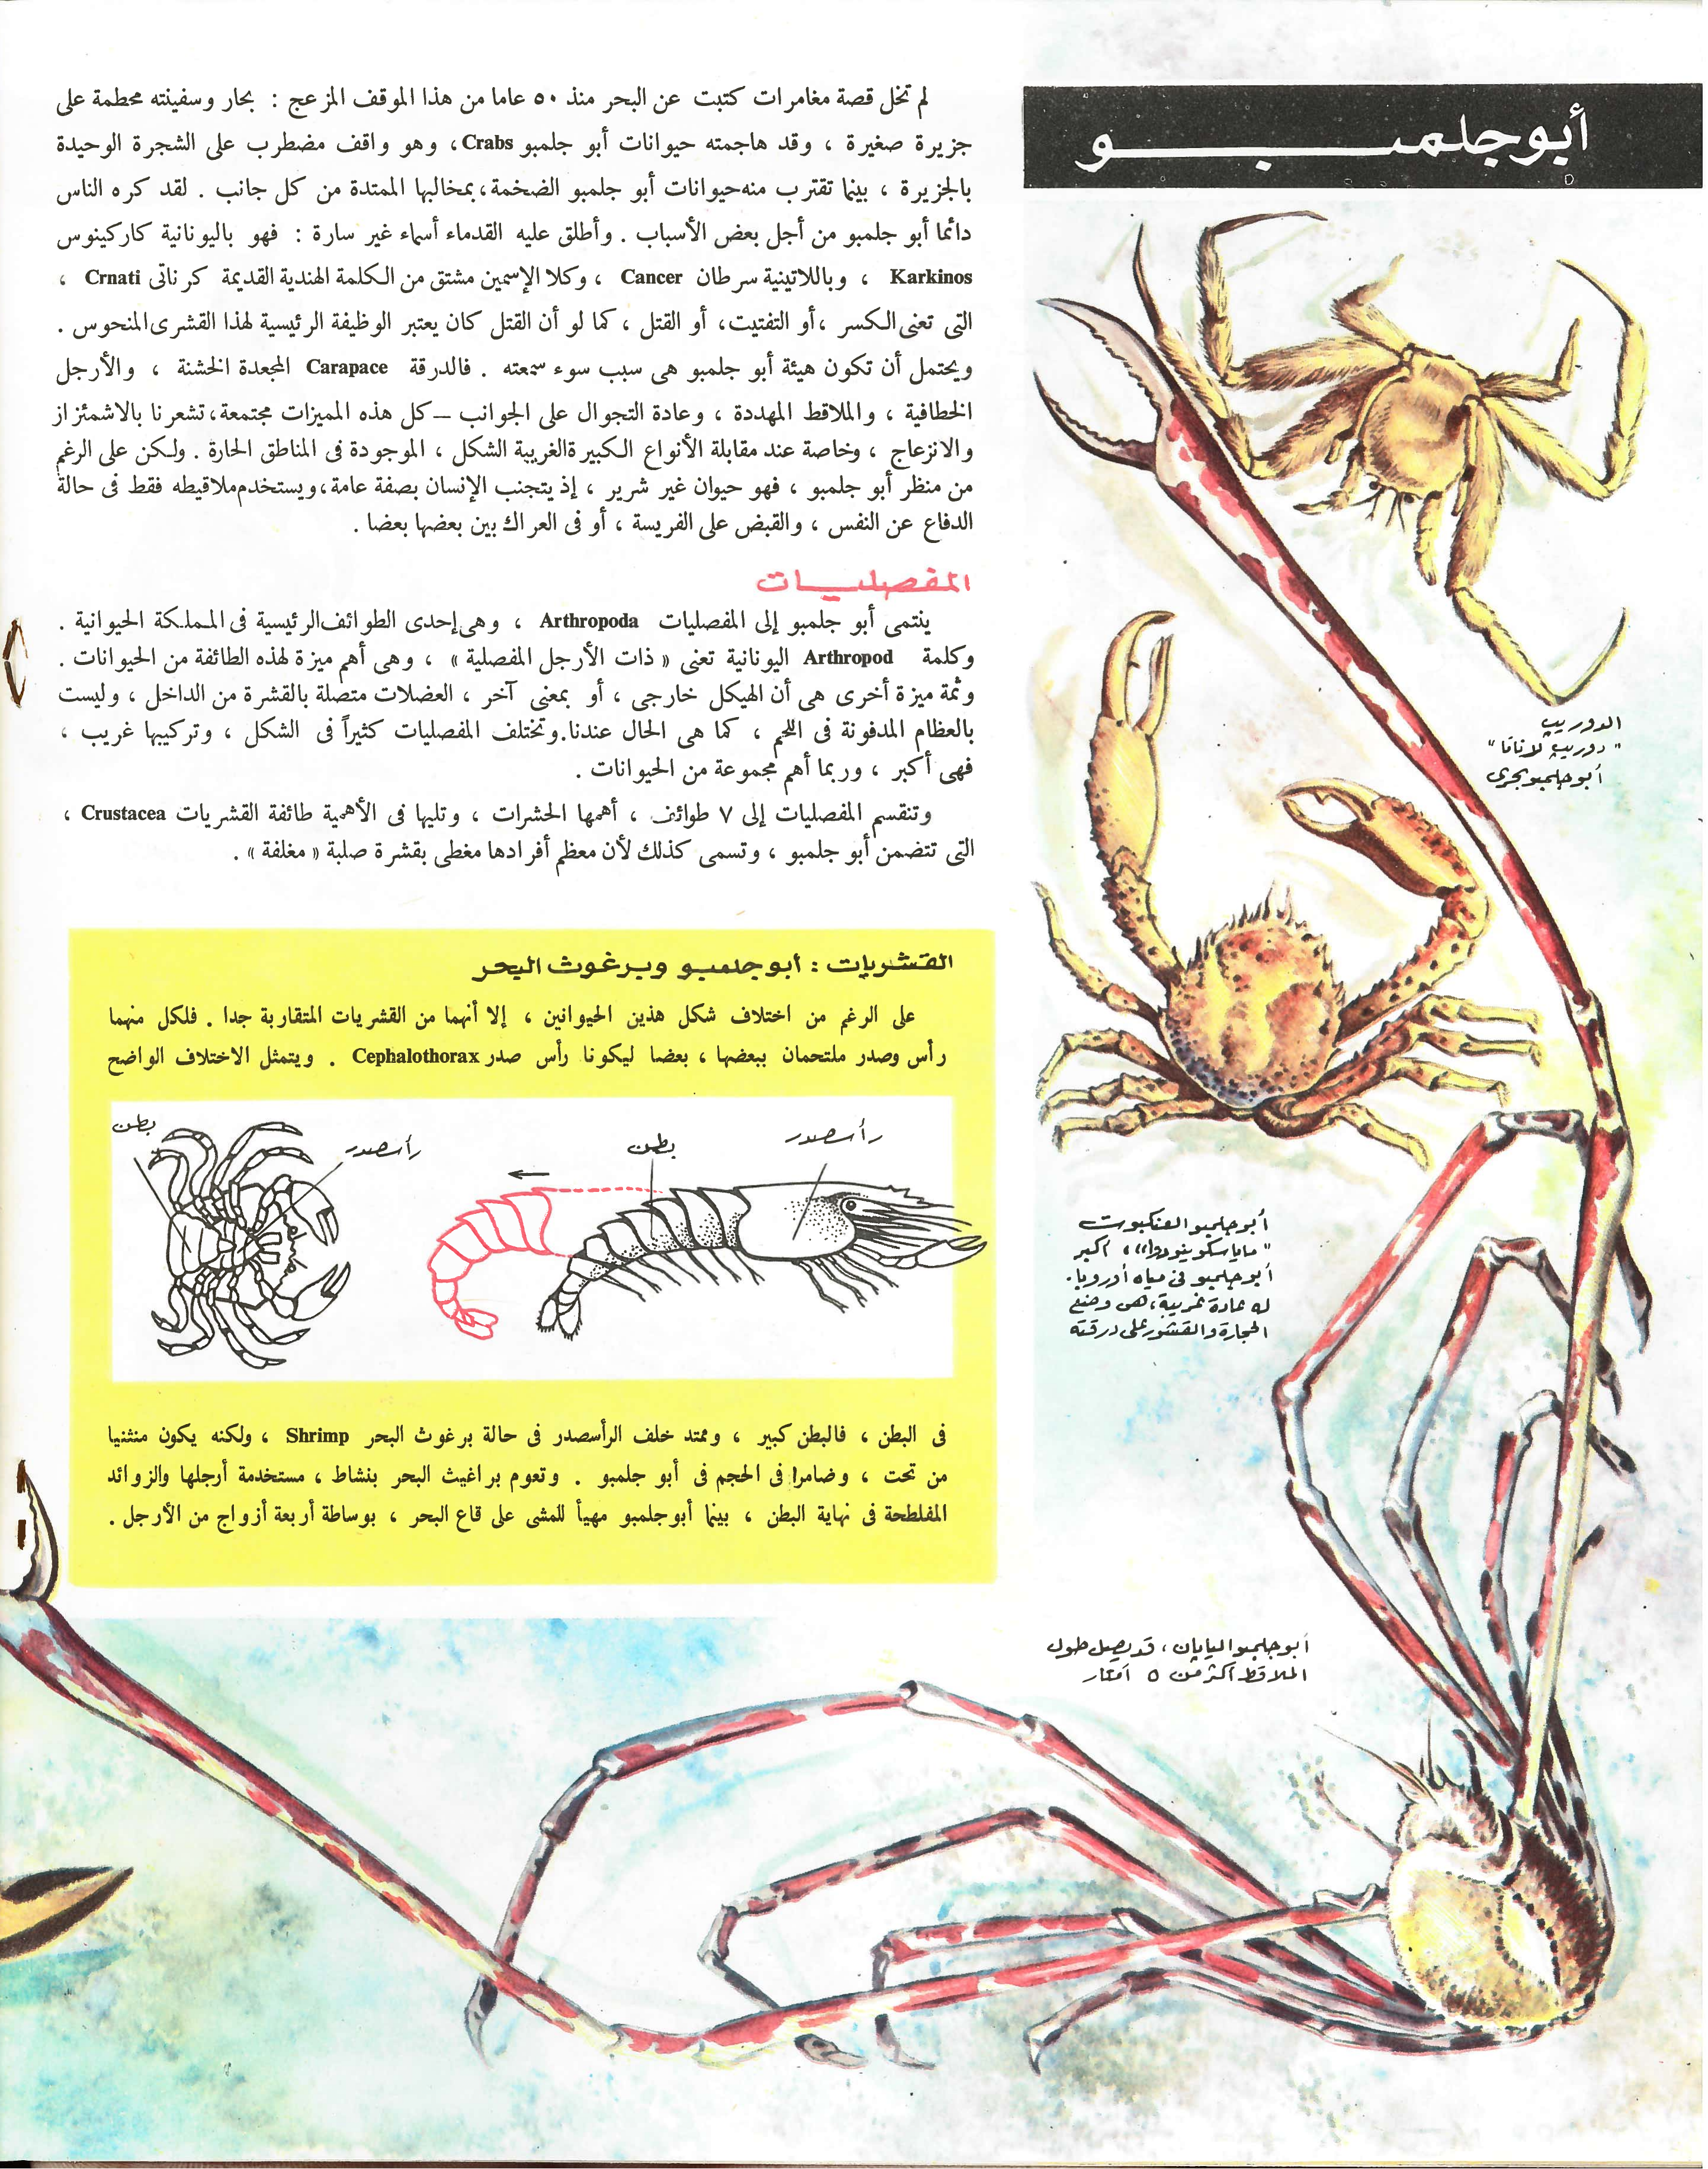 أبو جلمبـــــو
لم تخل قصة مغامرات كتبت عن البحر منذ ٥٠ عاما من هذا الموقف المزعج : بحار وسفينته محطمة على
جزيرة صغيرة ، وقد هاجمته حيوانات أبو جلمبو Crabs، وهو واقف مضطرب على الشجرة الوحيدة
بالجزيرة ، بينما تقترب منه حيوانات أبو جلمبو الضخمة ، بمخالبها الممتدة من كل جانب . لقد كره الناس
دائما أبو جلمبو من أجل بعض الأسباب . وأطلق عليه القدماء أسماء غير سارة : فهو باليونانية كاركينوس
Karkinos ، وباللاتينية سرطان Cancer ، وكلا الإسمين مشتق من الكلمة الهندية القديمة كرناتى Crnati ،
التى تعنى الكسر ، أو التفتيت، أو القتل ، كما لو أن القتل كان يعتبر الوظيفة الرئيسية لهذا القشرى المنحوس .
ويحتمل أن تكون هيئة أبو جلمبو هى سبب سوء سمعته . فالدرقة Carapace المجعدة الخشنة ، والأرجل
الخطافية ، والملاقط المهددة ، وعادة التجوال على الجوانب – كل هذه المميزات مجتمعة ، تشعرنا بالاشمئزاز
والانزعاج ، وخاصة عند مقابلة الأنواع الكبيرة الغريبة الشكل ، الموجودة فى المناطق الحارة . ولكن على الرغم
من منظر أبو جلمبو ، فهو حيوان غير شرير ، إذ يتجنب الإنسان بصفة عامة ، ويستخدم ملاقيطه فقط فى حالة
الدفاع عن النفس ، والقبض على الفريسة ، أو فى العراك بين بعضها بعضا .
المفصليـــات
ينتمى أبو جلمبو إلى المفصليات Arthropoda ، وهى إحدى الطوائف الرئيسية فى المملكة الحيوانية .
وكلمة Arthropod اليونانية تعنى « ذات الأرجل المفصلية » ، وهى أهم ميزة لهذه الطائفة من الحيوانات .
وثمة ميزة أخرى هى أن الهيكل خارجى ، أو بمعنى آخر ، العضلات متصلة بالقشرة من الداخل ، وليست
بالعظام المدفونة فى اللحم ، كما هى الحال عندنا. وتختلف المفصليات كثيراً فى الشكل ، وتركيبها غريب ،
فهى أكبر ، وربما أهم مجموعة من الحيوانات .
وتنقسم المفصليات إلى ٧ طوائف ، أهمها الحشرات ، وتليها فى الأهمية طائفة القشريات Crustacea ،
التى تتضمن أبو جلمبو ، وتسمى كذلك لأن معظم أفرادها مغطى بقشرة صلبة « مغلفة » .
القشريات : أبو جلمبو وبرغوث البحر
على الرغم من اختلاف شكل هذين الحيوانين ، إلا أنهما من القشريات المتقاربة جدا . فلكل منهما
رأس وصدر ملتحمان ببعضها ، بعضا ليكونا رأس صدر Cephalothorax . ويتمثل الاختلاف الواضح
رأسصدر
بطن
رأسصدر
بطن
فى البطن ، فالبطن كبير ، وممتد خلف الرأسصدر فى حالة برغوث البحر Shrimp ، ولكنه يكون منثنيا
من تحت ، وضامرا فى الحجم فى أبو جلمبو . وتعوم براغيث البحر بنشاط ، مستخدمة أرجلها والزوائد
المفلطحة فى نهاية البطن ، بينما أبو جلمبو مهيأ للمشى على قاع البحر ، بوساطة أربعة أزواج من الأرجل .
الدوريب
" دوريب لاناتا "
أبو جلمبو بحرى
أبو جلمبو العنكبوت
" ماياسكوينودوا" ، أكبر
أبو جلمبو فى مياه أوروبا .
له عادة غريبة ، هى وضع
الحجارة والقشور على درقته
أبو جلمبو اليابان ، قد يصل طول
الملاقط أكثر من ٥ أمتار